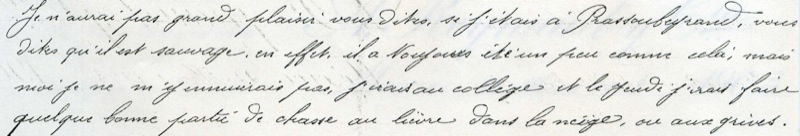 Je n'aurai pas grand plaisir vous dites, si j'étais à Rassoubeyrand, vous
dites qu'il est sauvage, en effet, il a toujours été un peu comme cela; mais
moi je ne m'y ennuierais pas, j'irais au collège et le jeudi j'irais faire
quelque bonne partie de chasse au lièvre dans la neige, ou aux grives.